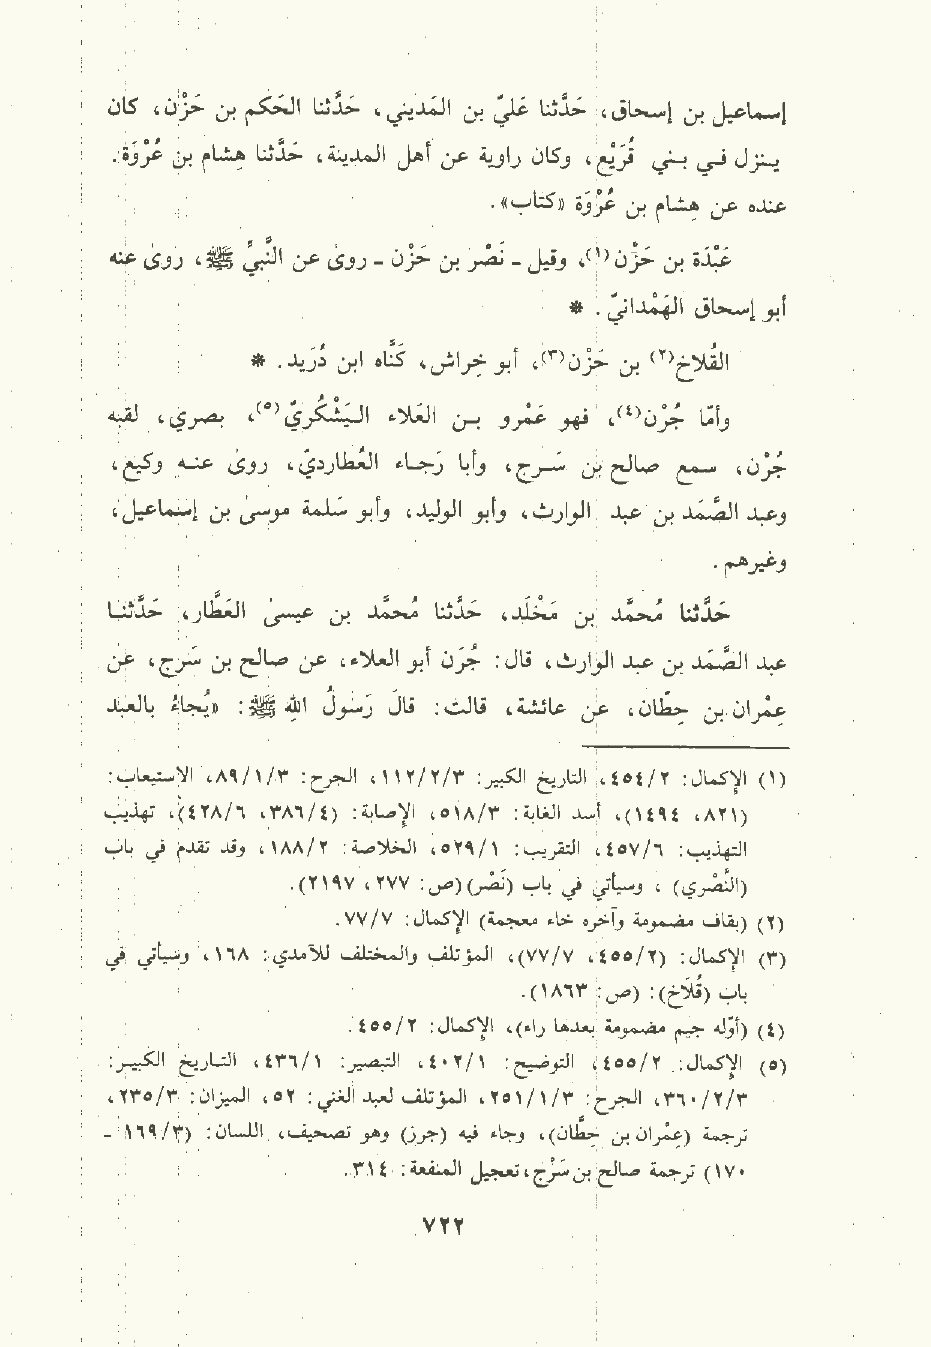 إسماعيل بن إسحاق، حَدَّثنا عَليّ بن المَديني، حَدَّثنا الحَكم بن حَزْن، كان
يـنزل فـي بـني قُرَيْع، وكان راوية عن أهل المدينة، حَدَّثنا هِشام بن عُرْوَة.
عنده عن هِشام بن عُرْوَة «كتاب».
عَبْدَة بن حَزْن(١)، وقيل ـ نَصْر بن حَزْن ـ روىٰ عن النَّبيِّ ﷺ، روىٰ عنه
أبو إسحاق الهَمْدانيّ. *
القُلاخ(٢) بن حَزْن(٣)، أبو خِراش، كَنَّاه ابن دُرَيد. *
وأمّا جُرْن(٤)، فهو عَمْرو بـن العَلاء اليَـشْكُريّ(٥)، بصري، لقبه
جُرْن، سـمع صالح بن سَـرج، وأبا رَجـاء العُطارديّ، روىٰ عـنه وكيع،
وعبد الصَّمَد بن عبد الوارث، وأبو الوليد، وأبو سَلمة موسىٰ بن إسماعيل،
وغيرهم.
حَدَّثنا مُحمَّد بن مَخْلَد، حَدَّثنا مُحمَّد بن عيسىٰ العَطَّار، حَدَّثنـا
عبد الصَّمَد بن عبد الوارث، قال: جُرَن أبو العلاء، عن صالح بن سَرج، عن
عِمْران بن حِطَّان، عن عائشة، قالت: قالَ رَسُولُ الله ﷺ: «يُجاءُ بالعبد
(١) الإكمال: ٤٥٤/٢، التاريخ الكبير: ١١٢/٢/٣، الجرح: ٨٩/١/٣، الاستيعاب:
(٨٢١، ١٤٩٤)، أسد الغابة: ٥١٨/٣، الإصابة: (٣٨٦/٤، ٤٢٨/٦)، تهذيب
التهذيب: ٤٥٧/٦، التقريب: ٥٢٩/١، الخلاصة: ١٨٨/٢، وقد تقدم في باب
(النَّصْري) ، وسيأتي في باب (نَصْر)(ص: ٢٧٧، ٢١٩٧).
(٢) (بقاف مضمومة وآخره خاء معجمة) الإكمال: ٧٧/٧.
(٣) الإكمال: (٤٥٥/٢، ٧٧/٧)، المؤتلف والمختلف للآمدي: ١٦٨، وسيأتي في
باب (قُلَاخ): (ص: ١٨٦٣).
(٤) (أوّله جيم مضمومة بعدها راء)، الإكمال: ٤٥٥/٢.
(٥) الإكمال: ٤٥٥/٢، التوضيح: ٤٠٢/١، التبصير: ٤٣٦/١، التـاريخ الكبيـر:
٣٦٠/٢/٣، الجرح: ٢٥١/١/٣، المؤتلف لعبد الغني: ٥٢، الميزان: ٢٣٥/٣،
ترجمة (عِمْران بن حِطَّان)، وجاء فيه (جرز) وهو تصحيف، اللسان: (١٦٩/٣ ـ
١٧٠) ترجمة صالح بن سَرْج، تعجيل المنفعة: ٣١٤.
٧٢٢